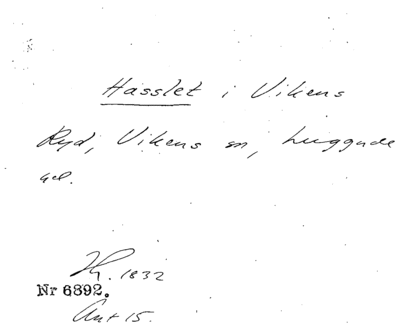 Hasslet i Vikens
Ryd, Vikens sn, huggnde
ael.
Hg. 1832
Nr 6892.
Ant 15.